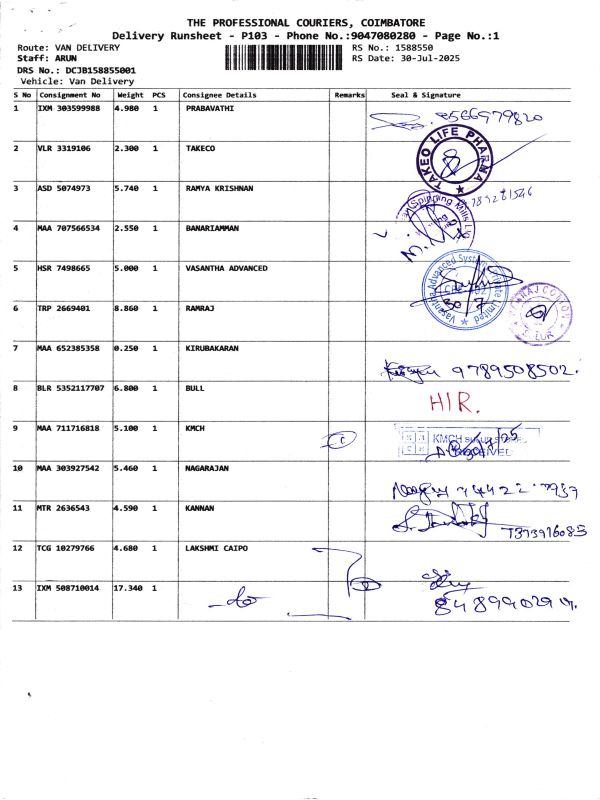 THE PROFESSIONAL COURIERS, COIMBATORE
Delivery Runsheet - P103 - Phone No.:9047080280 - Page No.:1
Route: VAN DELIVERY RS No.: 1588550
Staff: ARUN RS Date: 30-Jul-2025
DRS No.: DCJB158855001
Vehicle: Van Delivery
S No Consignment No Weight PCS Consignee Details Remarks Seal & Signature
1 IXM 303599988 4.980 1 PRABAVATHI
2 VLR 3319106 2.300 1 TAKECO
TAKEO LIFE PHARMA
3 ASD 5074973 5.740 1 RAMYA KRISHNAN
Spinning Mills
4 MAA 707566534 2.550 1 BANARIAMMAN
5 HSR 7498665 5.000 1 VASANTHA ADVANCED
Vasantha Advanced Systems Private Limited
30/7
6 TRP 2669401 8.860 1 RAMRAJ
7 MAA 652385358 0.250 1 KIRUBAKARAN
9789508502.
8 BLR 5352117707 6.800 1 BULL
HIR.
9 MAA 711716818 5.100 1 KMCH
KMCH
10 MAA 303927542 5.460 1 NAGARAJAN
11 MTR 2636543 4.590 1 KANNAN
12 TCG 10279766 4.680 1 LAKSHMI CAIPO
13 IXM 508710014 17.340 1